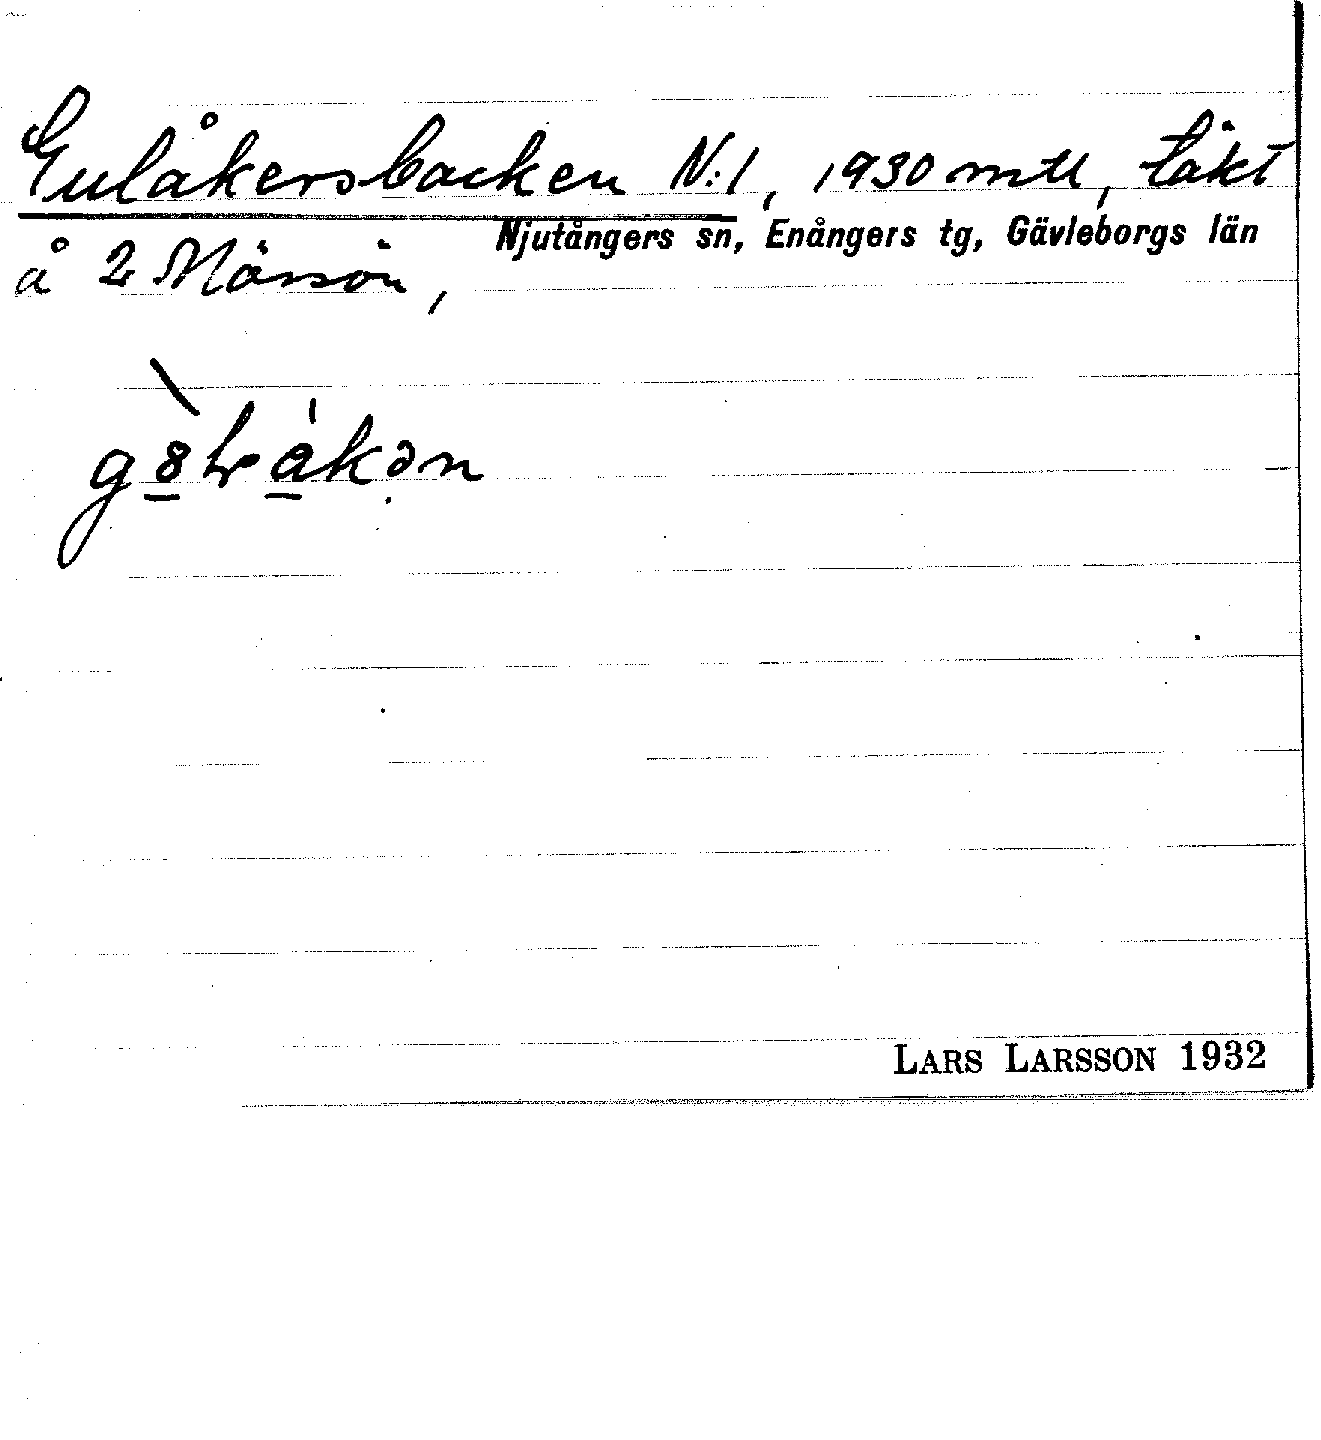 Gulåkersbacken N:1, 1930 mtl, täkt
Njutångers sn, Enångers tg, Gävleborgs län
å 2 Mössön,
LARS LARSSON 1932